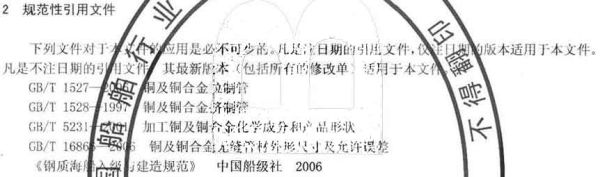 2 规范性引用文件
下列文件对于本文件的应用是必不可少的。凡是注日期的引用文件，仅注日期的版本适用于本文件。
凡是不注日期的引用文件，其最新版本（包括所有的修改单）适用于本文件。
GB/T 1527 铜及铜合金拉制管
GB/T 1528—1997 铜及铜合金挤制管
GB/T 5231 加工铜及铜合金化学成分和产品形状
GB/T 16866—2006 铜及铜合金无缝管材外形尺寸及允许误差
《钢质海船入级与建造规范》 中国船级社 2006
国船舶行业
不得翻印